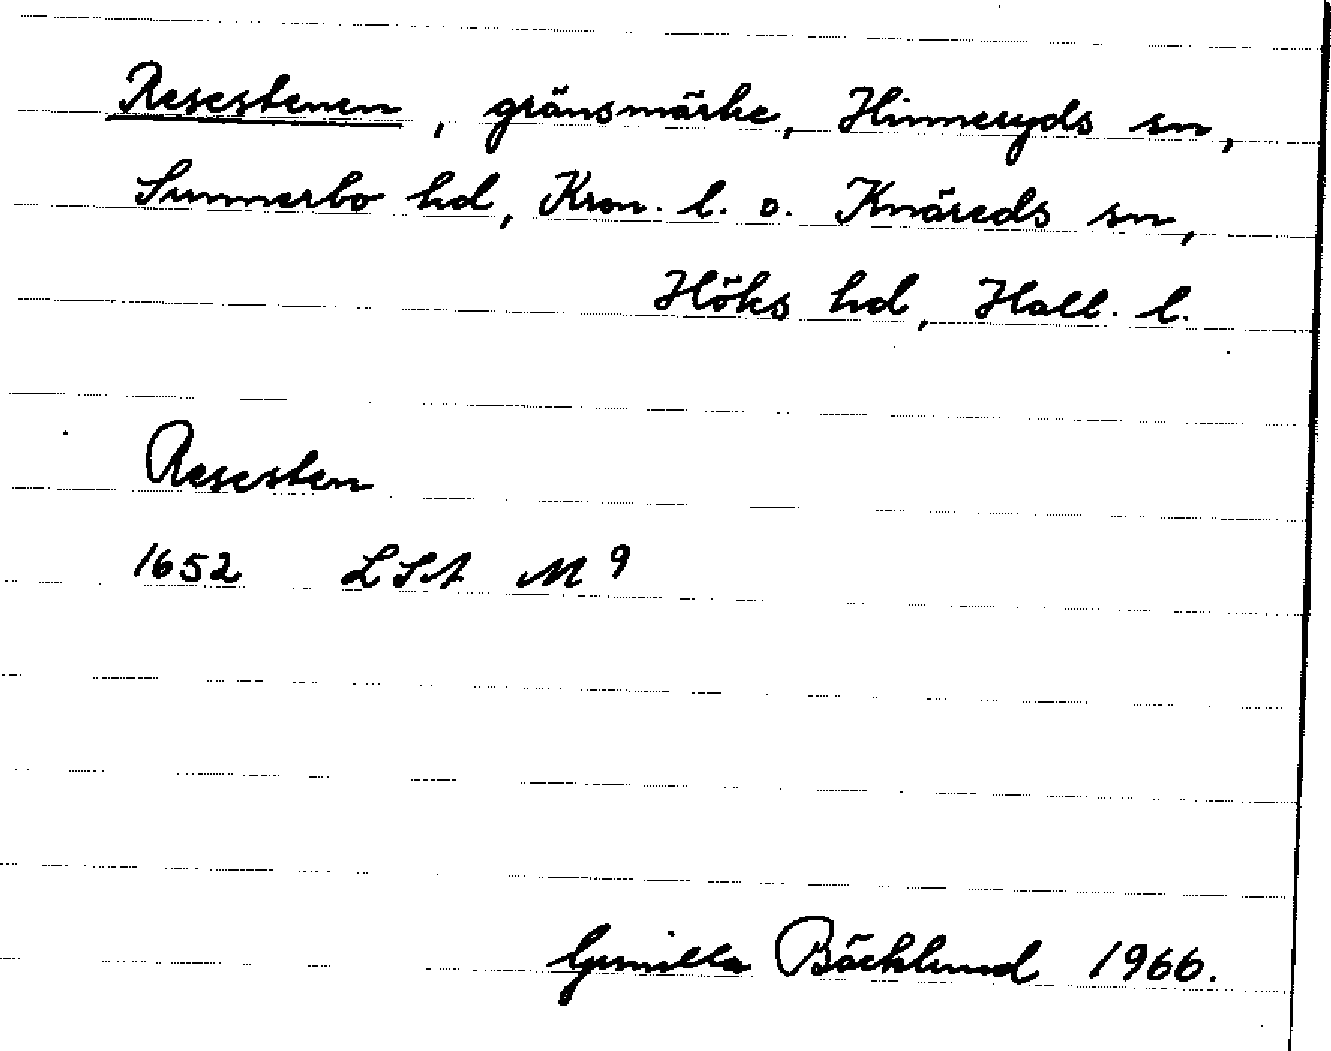 Resestenen, gränsmärke, Hinneryds sn,
Sunnerbo hd, Kron. l. o. Knäreds sn,
Höks hd, Hall. l.
Resesten
1652 LSA M 9
Gunilla Bäcklund 1966.